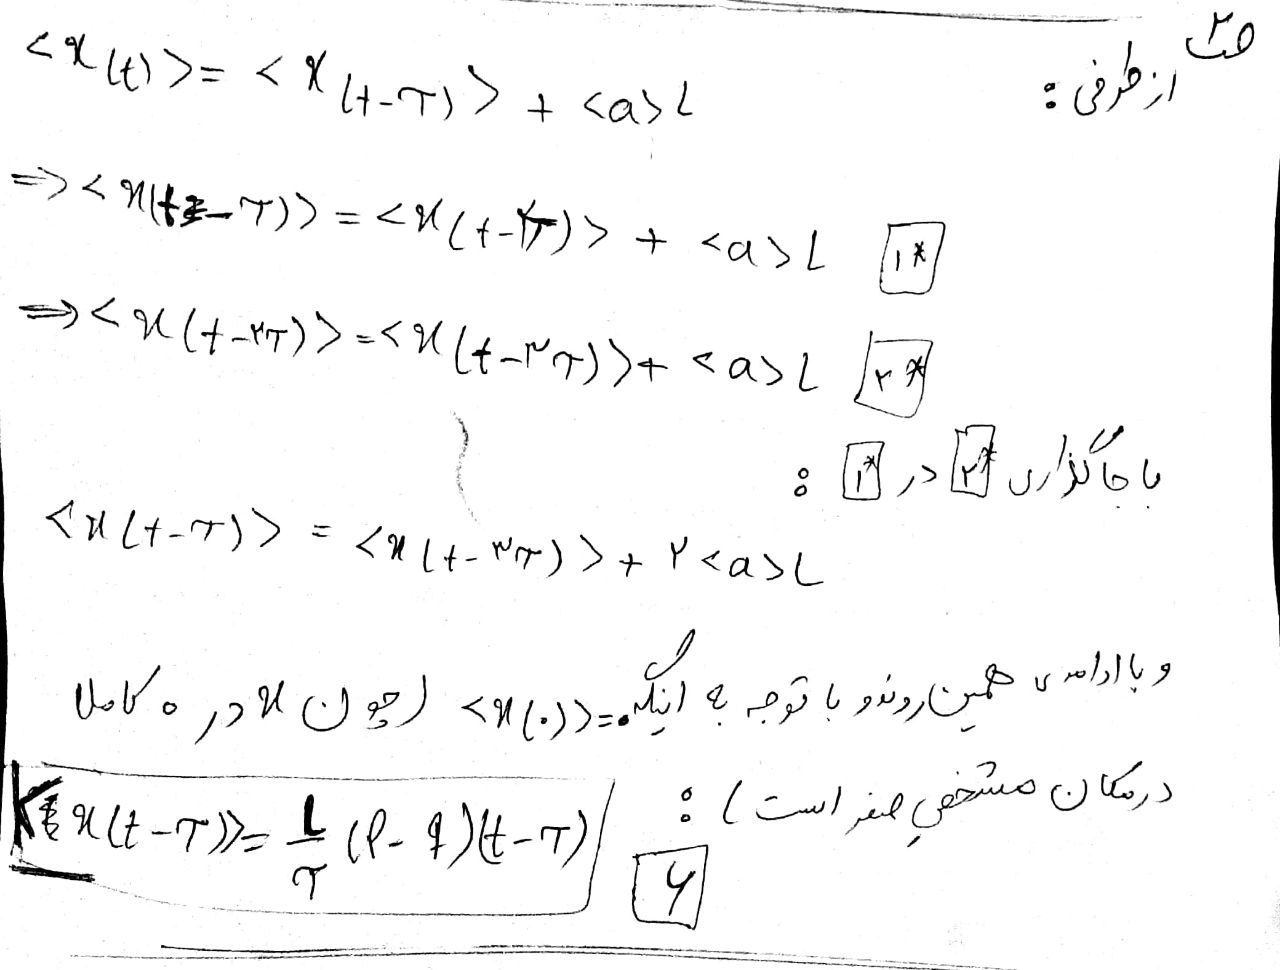 ص۲
از طرفی :
<x(t)> = <x(t-τ)> + <a>L
=> <x(t-τ)> = <x(t-۲τ)> + <a>L ۱*
=> <x(t-۲τ)> = <x(t-۳τ)> + <a>L ۲*
با جاگذاری ۲* در ۱* :
<x(t-τ)> = <x(t-۳τ)> + ۲<a>L
و با ادامه ی همین روند و با توجه به اینکه <x(۰)>=۰ (چون x در ۰ کاملا
در مکان مشخص صفر است) :
<x(t-τ)> = L/τ (p-q)(t-τ) ۶